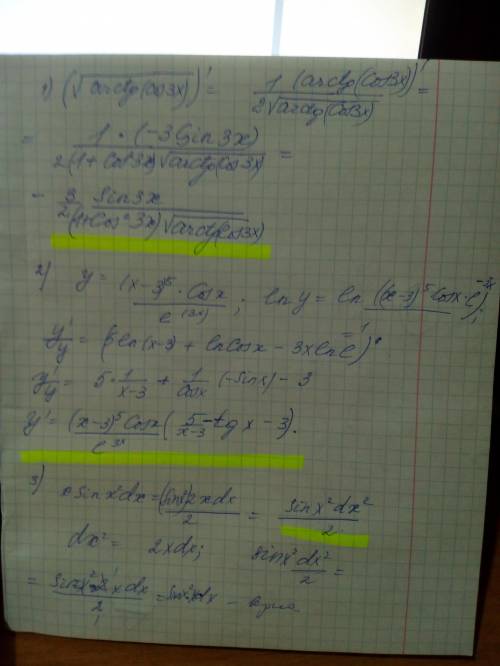 1) (√arctg(cos3x))' = 1 (arctg(cos3x))' / 2√arctg(cos3x) =
= 1 · (-3sin3x) / 2(1+cos²3x)√arctg(cos3x) =
- 3/2 sin3x / (1+cos²3x)√arctg(cos3x)
2) y = (x-3)⁵ · cosx / e^(3x) ; ln y = ln((x-3)⁵ cosx · e^-3x);
y'/y = (5ln(x-3) + lncosx - 3x lne)'
y'/y = 5 · 1/(x-3) + 1/cosx (-sinx) - 3
y' = (x-3)⁵ cosx / e^3x (5/(x-3) - tgx - 3).
3) x sinx²dx = (sinx²)2xdx / 2 = sinx²dx² / 2
dx² = 2xdx; sinx²dx² / 2 =